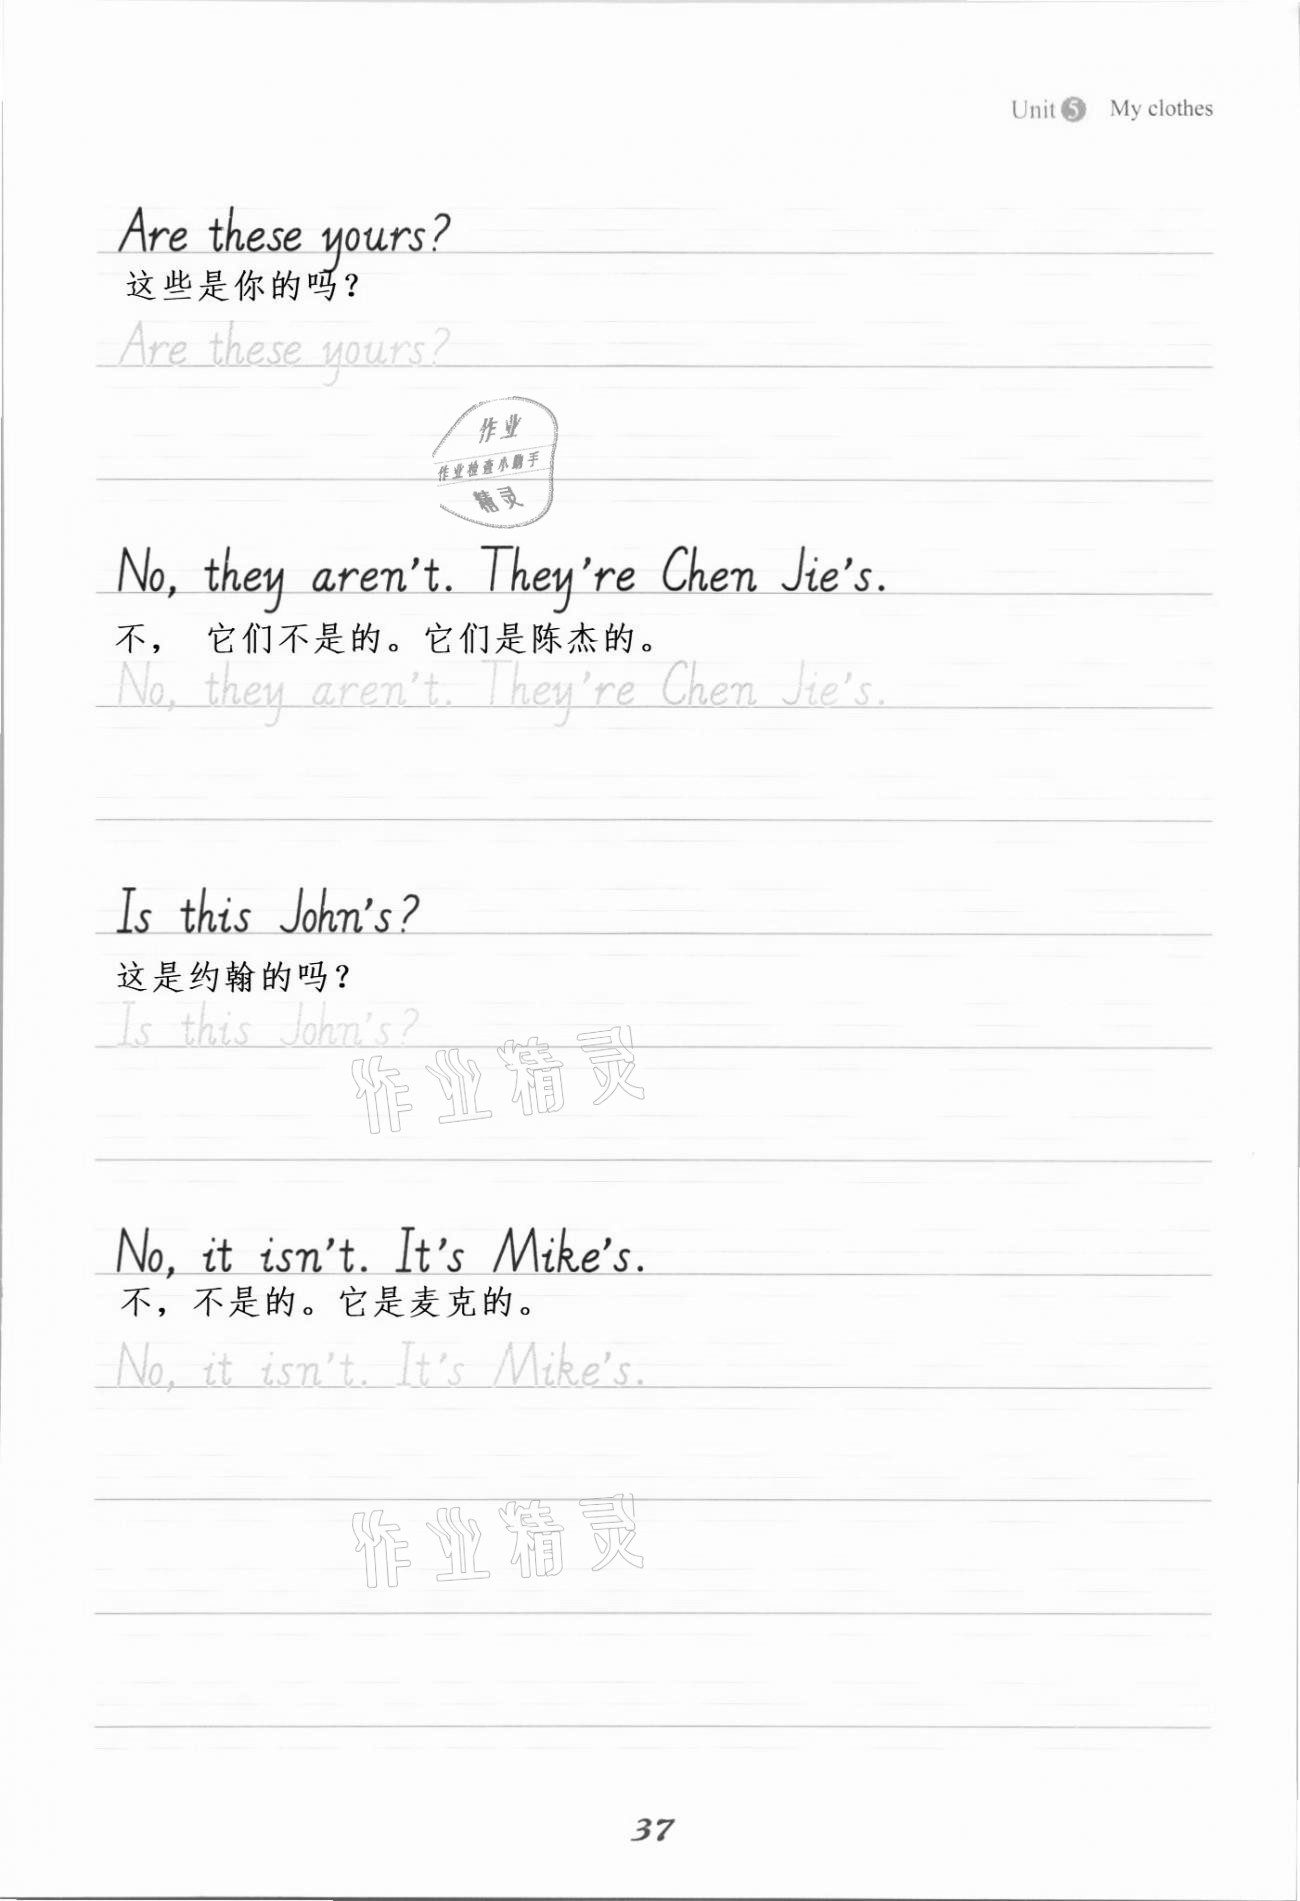 Unit 5 My clothes
Are these yours?
这些是你的吗？
Are these yours?
作业
作业检查小助手
精灵
No, they aren't. They're Chen Jie's.
不， 它们不是的。它们是陈杰的。
No, they aren't. They're Chen Jie's.
Is this John's?
这是约翰的吗？
Is this John's?
作业精灵
No, it isn't. It's Mike's.
不，不是的。它是麦克的。
No, it isn't. It's Mike's.
作业精灵
37